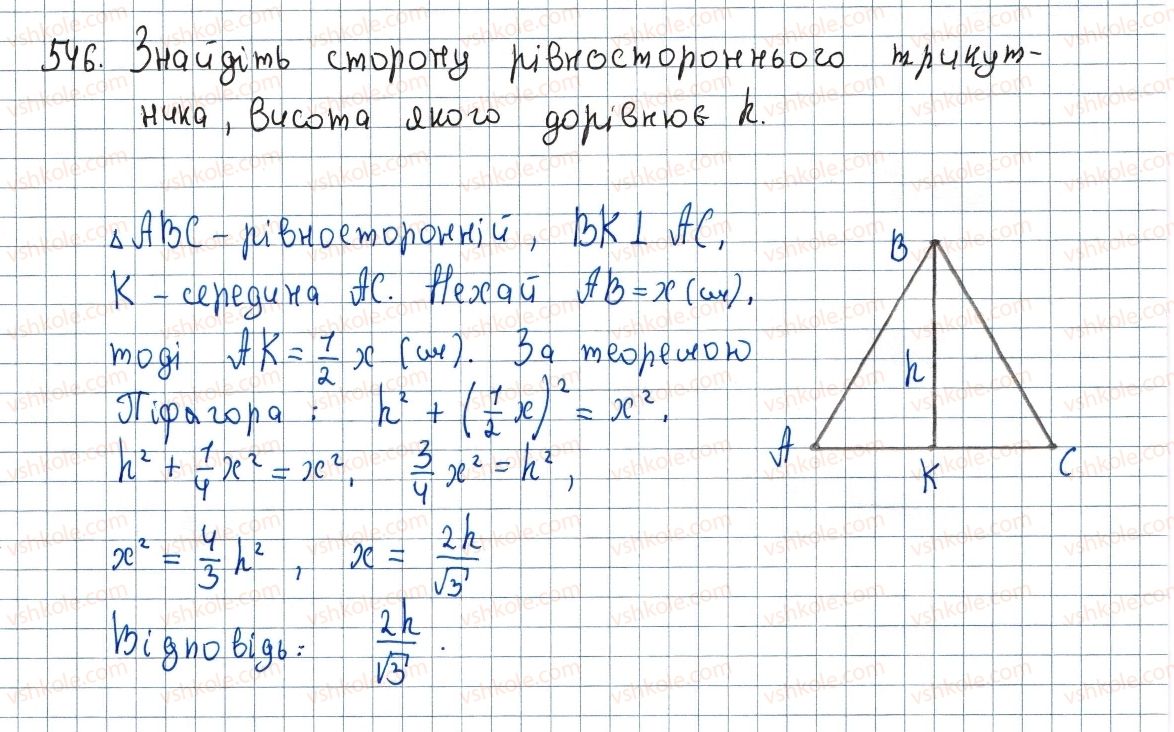 546. Знайдіть сторону рівностороннього трикут-
ника, висота якого дорівнює h.
△ABC – рівносторонній, BK⊥AC,
K – середина AC. Нехай AB = x (см),
тоді AK = 1/2 x (см). За теоремою
Піфагора: h² + (1/2 x)² = x²,
h² + 1/4 x² = x², 3/4 x² = h²,
x² = 4/3 h², x = 2h/√3
Відповідь: 2h/√3.
B
h
A
K
C